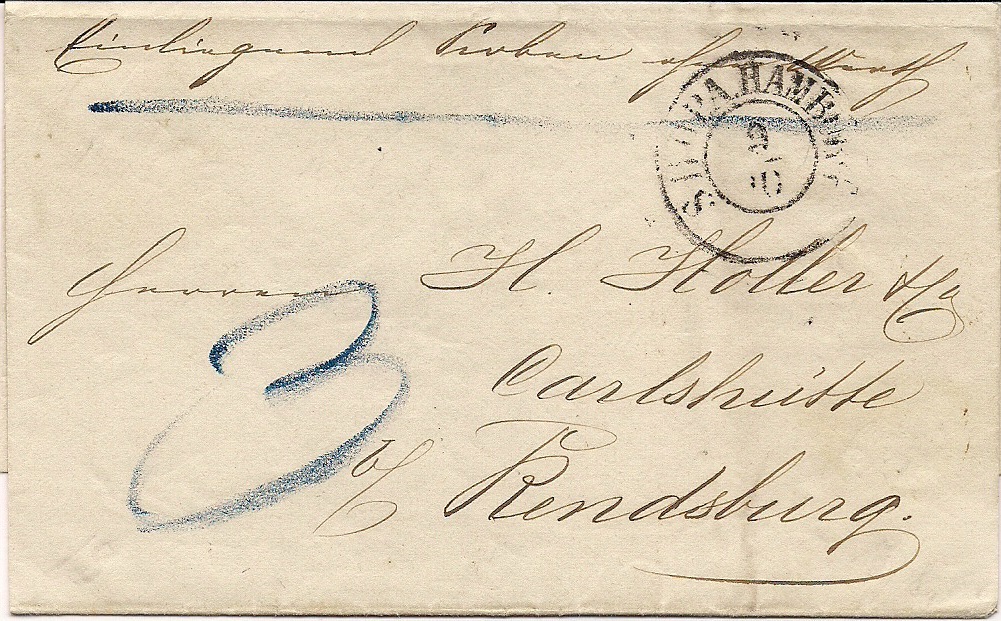 Einliegend Proben ohne Werth
S.T.P.A. HAMBURG
9
10
Herren H. Holler & Co
3
Carlshütte
b/ Rendsburg.